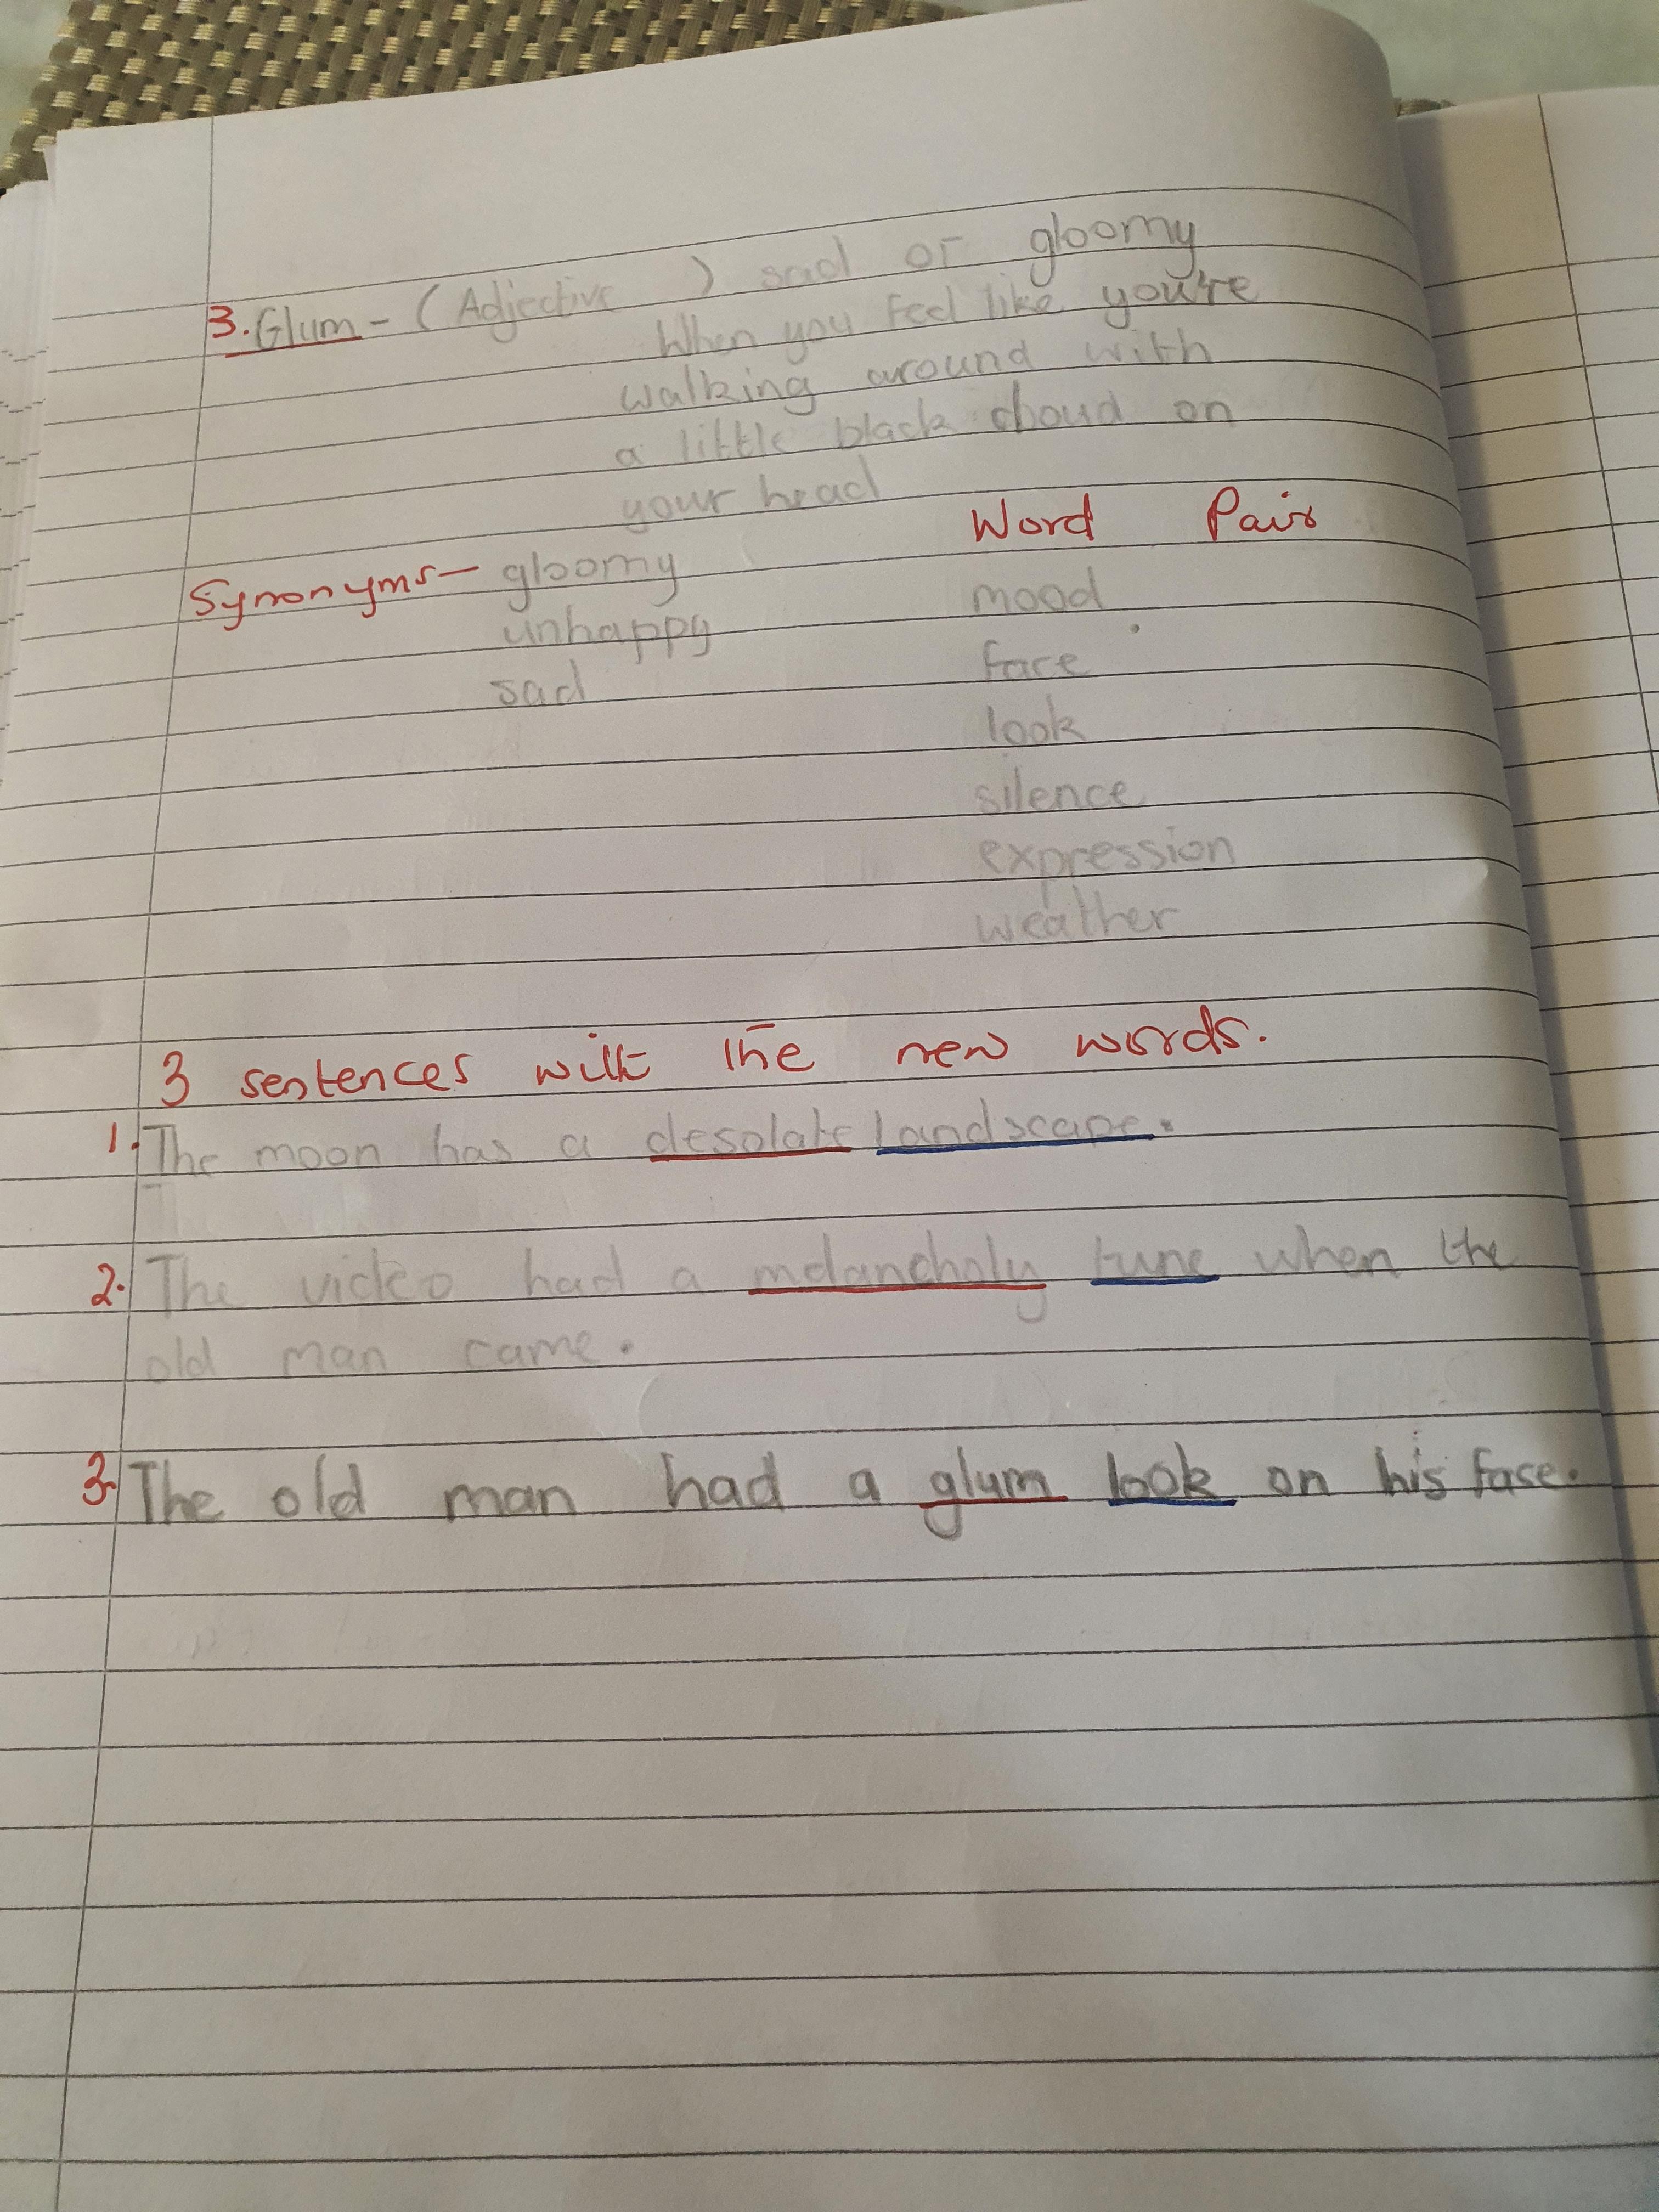 3. Glum - (Adjective ) sad or gloomy
When you feel like you're
walking around with
a little black cloud on
your head
Word Pair
Synonyms - gloomy
mood
unhappy
face
sad
look
silence
expression
weather
3 sentences with the new words.
1. The moon has a desolate landscape.
2. The video had a melancholy tune when the
old man came.
3. The old man had a glum look on his face.